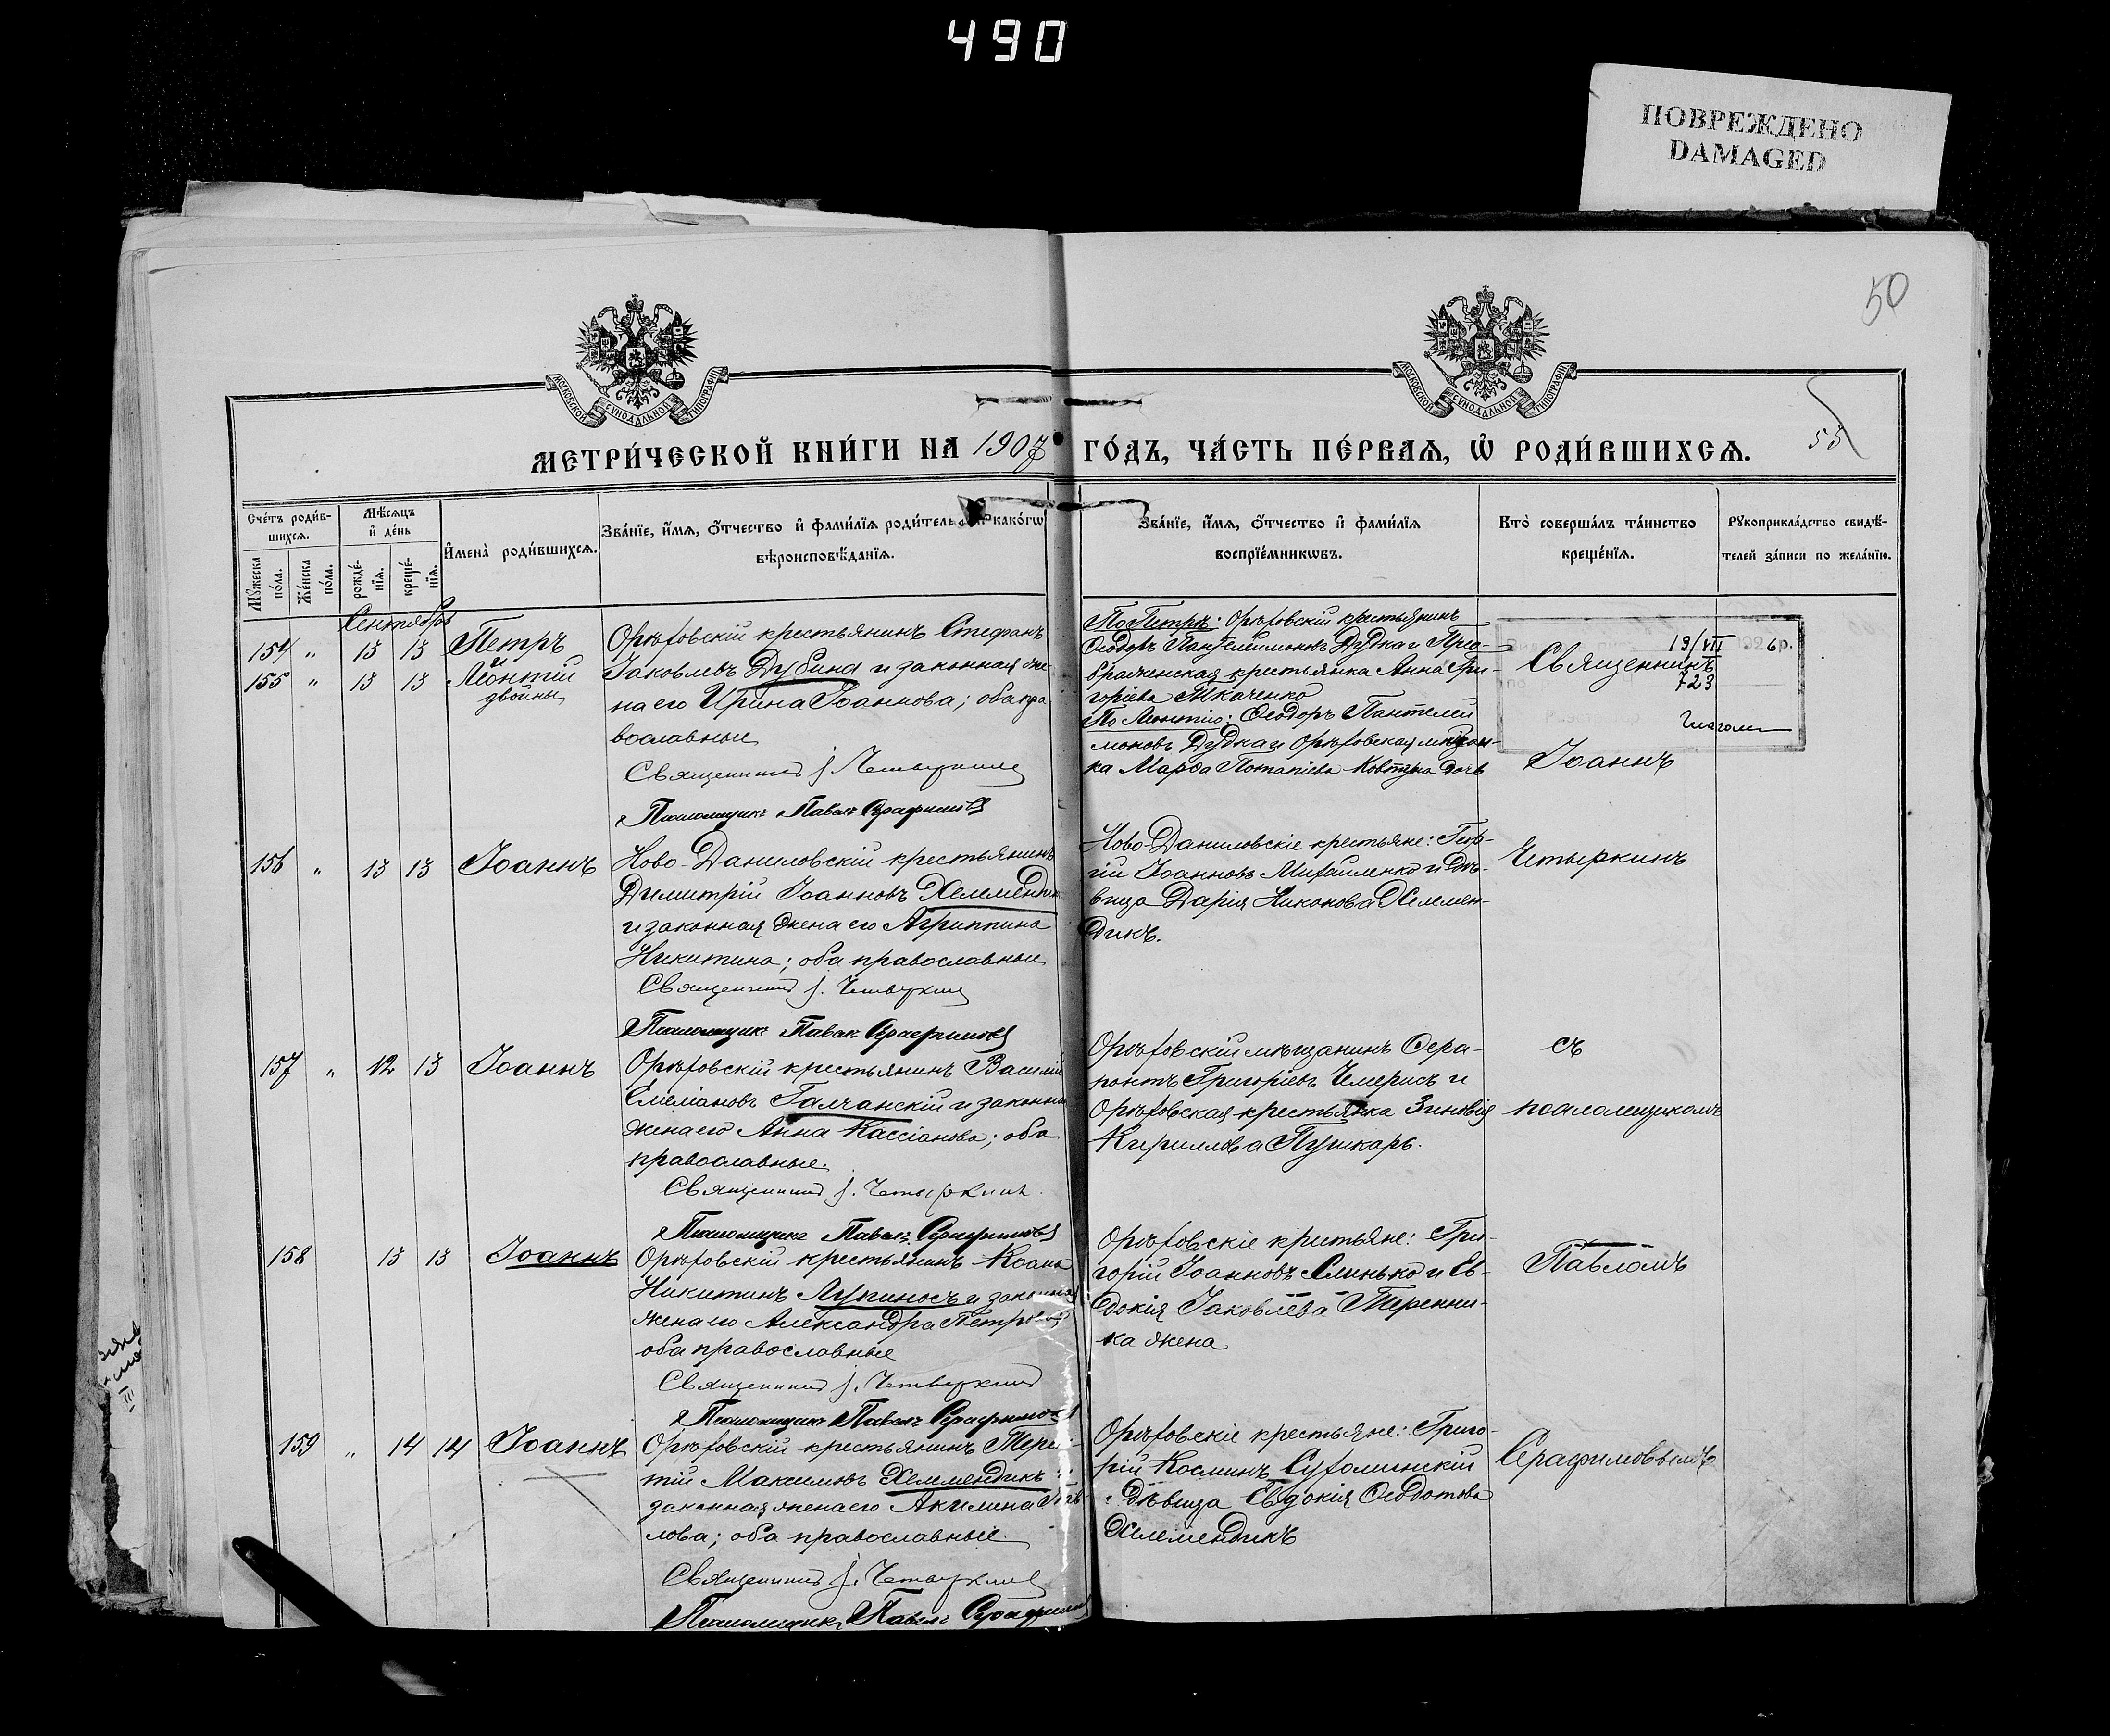 490
ПОВРЕЖДЕНО
DAMAGED
50
МОСКОВСКОЙ СѴНОДАЛЬНОЙ ТИПОГРАФІИ
МОСКОВСКОЙ СѴНОДАЛЬНОЙ ТИПОГРАФІИ
МЕТРИ́ЧЕСКОЙ КНИ́ГИ НА 1907 ГО́ДЪ, ЧА́СТЬ ПЕ́РВАѦ, Ѡ РОДИ́ВШИХСѦ.
53
Сче́тъ роди́в-
шихсѧ.
Мꙋ́жеска по́ла.
Же́нска по́ла.
Мѣ́сѧцъ
и҆ де́нь
рожде́-нїѧ.
креще́-нїѧ.
И҆мена̀ роди́вшихсѧ.
Зва́нїе, и҆́мѧ, ѻ҆́тчество и҆ фами́лїѧ роди́тель како́гѡ
вѣроисповѣ́данїѧ.
Зва́нїе, и҆́мѧ, ѻ҆́тчество и҆ фами́лїѧ
воспрїе́мникѡвъ.
Кто̀ соверша́лъ та́инство
креще́нїѧ.
Рꙋкоприкла́дство свидѣ́-
телей за́писи по жела́нїю.
Сентябрь
154 " 13 13 Петръ
155 " 13 13 Леонтій
двойны
Орѣховскій крестьянинъ Стефанъ
Іаковлевъ Дубина и законная же-
на его Ирина Іоаннова; оба пра-
вославные
Священникъ І. Четыркинъ
Псаломщикъ Павелъ Серафимовъ
По Петрѣ: Орѣховскій крестьянинъ
Ѳеодоръ Пантелеимоновъ Дудка и Прео-
браженская крестьянка Анна Гри-
горіева Ткаченко
По Леонтію: Ѳеодоръ Пантелеи
моновъ Дудка и Орѣховская мѣщан-
ка Марѳа Потапіева Ковтуна дочь
13/VII 1926 р.
723
Священникъ
Іоаннъ
156 " 13 13 Іоаннъ
Ново-Даниловскій крестьянинъ
Димитрій Іоанновъ Желемендик
и законная жена его Агриппина
Никитина; оба православные
Священникъ І. Четыркинъ
Псаломщикъ Павелъ Серафимовъ
Ново-Даниловскіе крестьяне: Геор-
гій Іоанновъ Михайленко и дѣ-
вица Дарія Никонова Желемен-
дикъ.
Четыркинъ
157 " 12 13 Іоаннъ
Орѣховскій крестьянинъ Василій
Емеліановъ Галчанскій и законная
жена его Анна Кассіанова; оба
православные.
Священникъ І. Четыркинъ.
Псаломщикъ Павелъ Серафимовъ
Орѣховскій мѣщанинъ Ѳера-
понтъ Григоріевъ Чемерисъ и
Орѣховская крестьянка Зиновія
Кириллова Пушкарь.
съ
псаломщикомъ
158 13 13 Іоаннъ
Орѣховскій крестьянинъ Косма
Никитинъ Лупиносъ и законная
жена его Александра Петрова;
оба православные
Священникъ І. Четыркинъ
Псаломщикъ Павелъ Серафимовъ
Орѣховскіе крестьяне: Гри-
горій Іоанновъ Слинько и Ев-
докія Іаковлева Теренни-
ка жена
Павломъ
159 " 14 14 Іоаннъ
Орѣховскій крестьянинъ Терен-
тій Максимовъ Желемендикъ и
законная жена его Акилина
лова; оба православные.
Священникъ І. Четыркинъ
Псаломщикъ Павелъ Серафимовъ
Орѣховскіе крестьяне: Григо-
рій Косминъ Сухомлинскій
и дѣвица Евдокія Ѳеодотова
Желемендикъ
Серафимовымъ